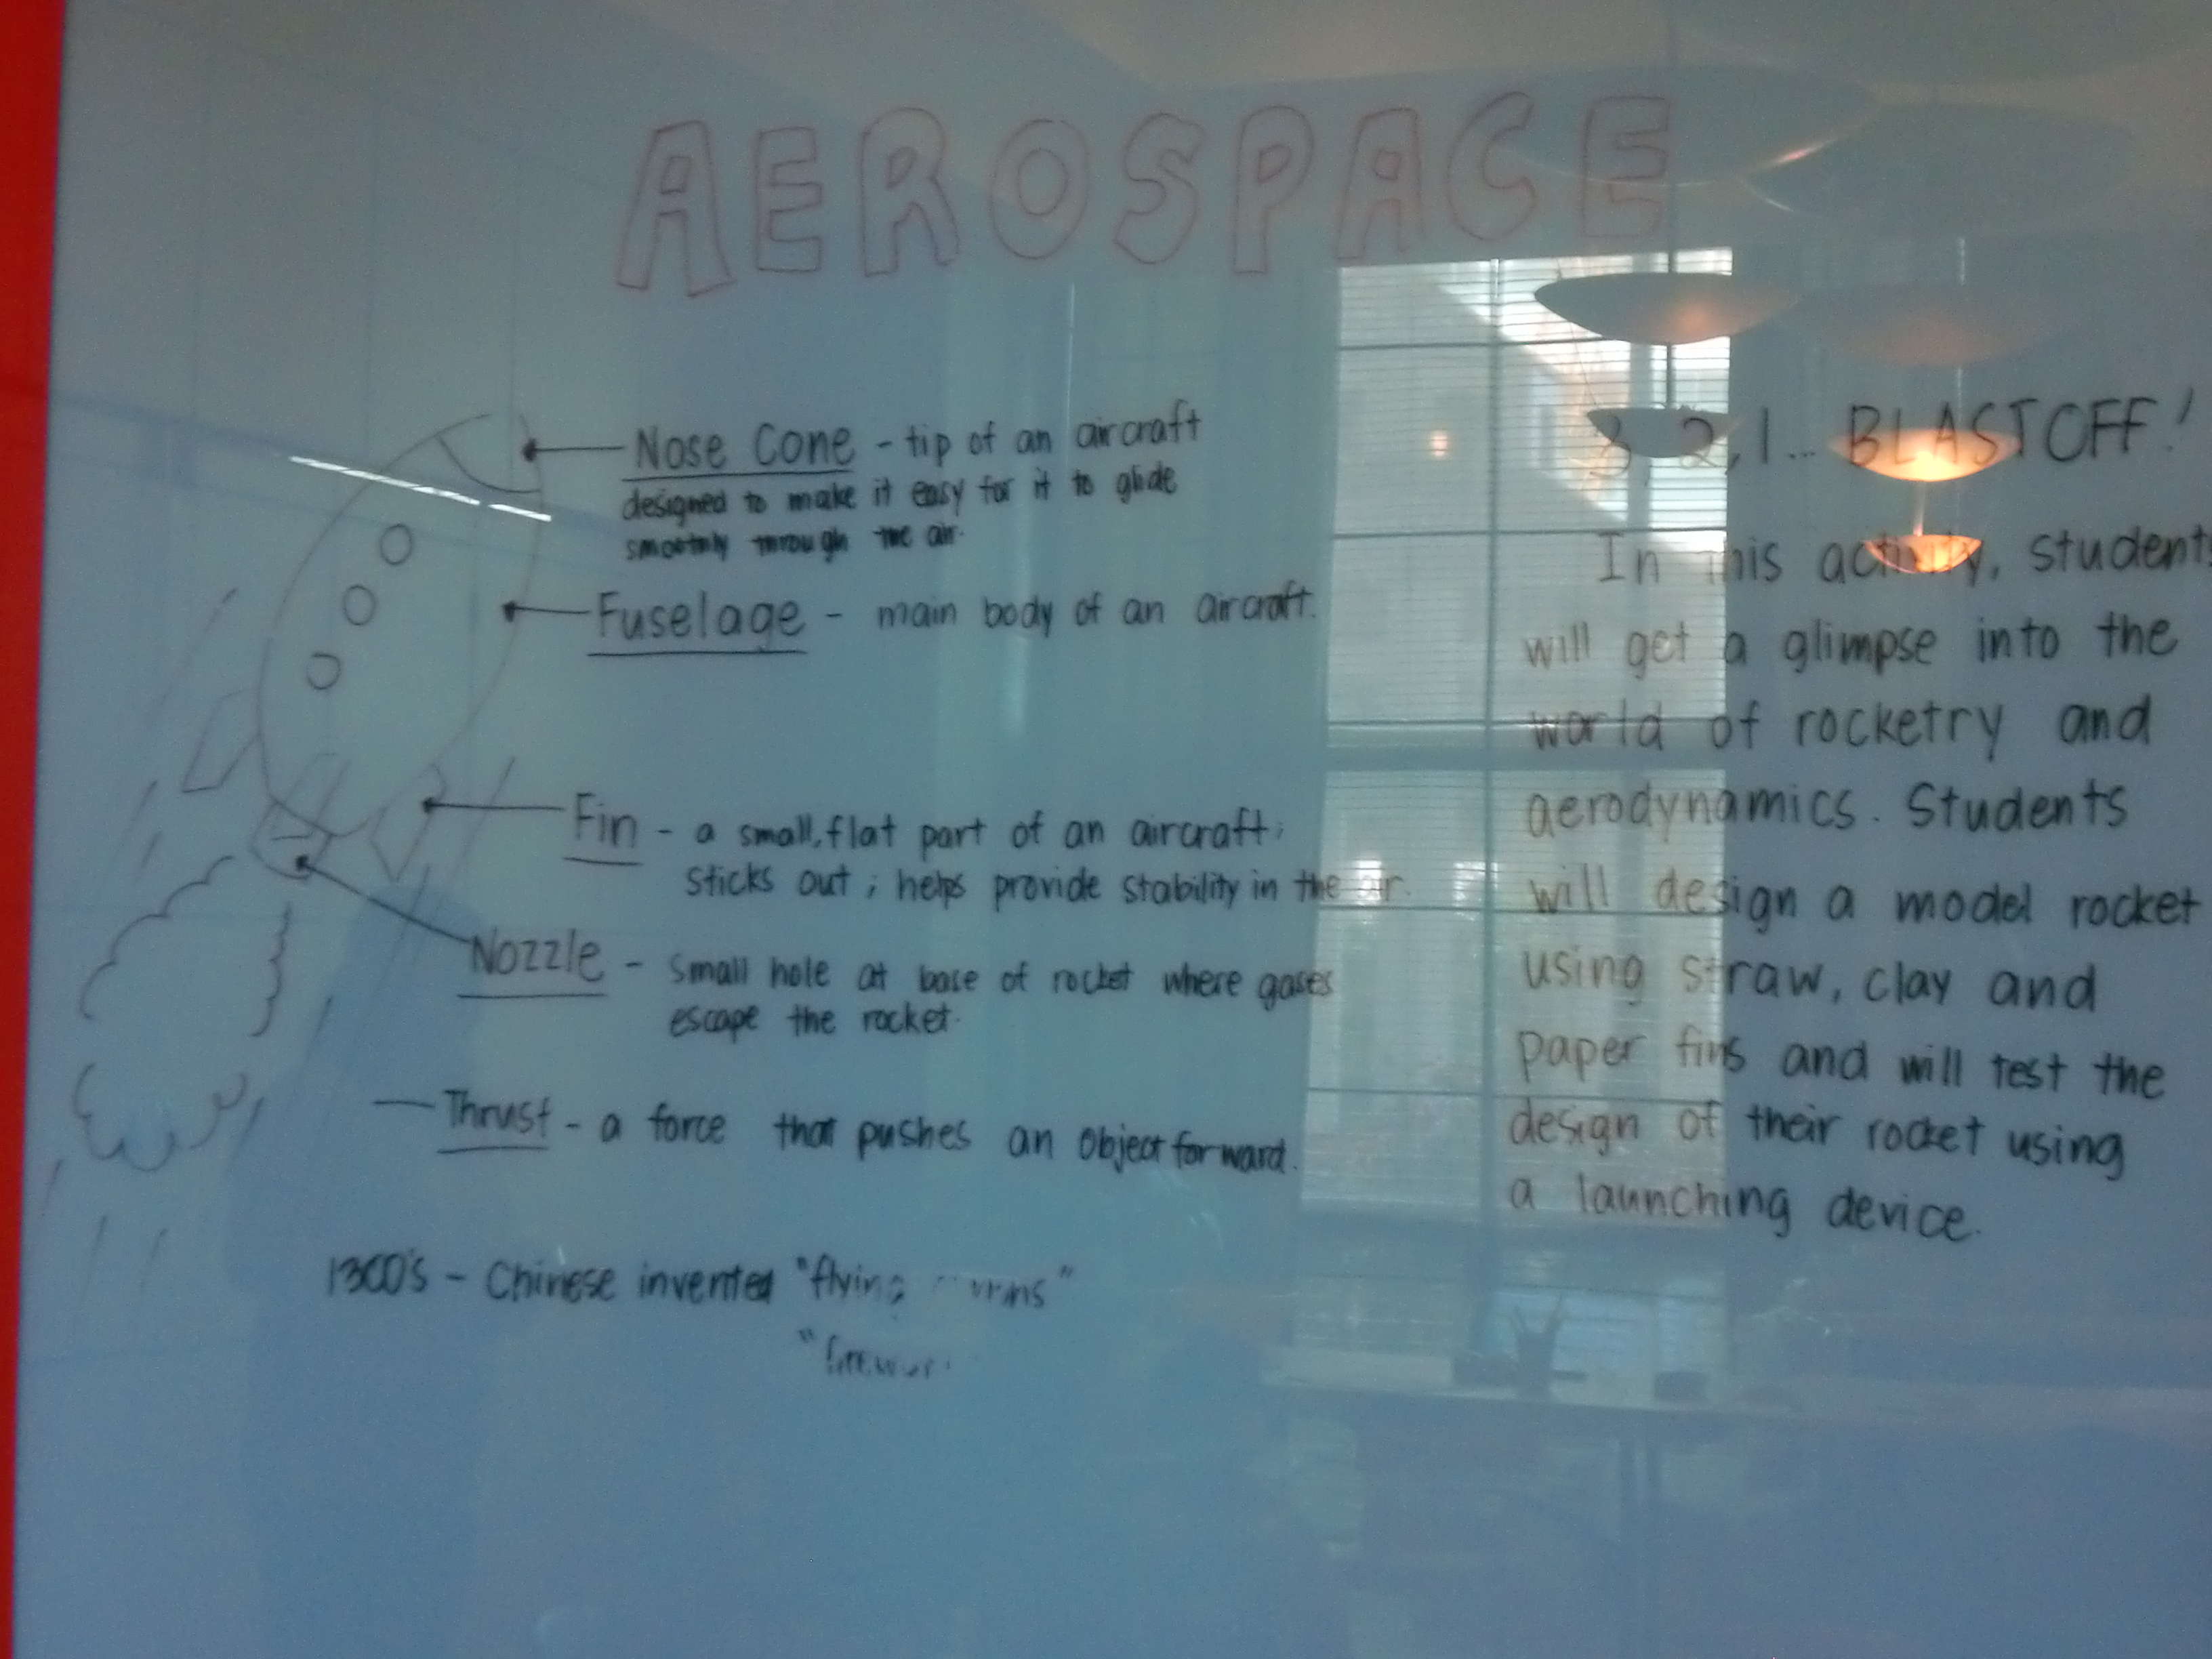 AEROSPACE
Nose Cone - tip of an aircraft
designed to make it easy for it to glide
smoothly through the air.
Fuselage - main body of an aircraft.
Fin - a small, flat part of an aircraft;
sticks out; helps provide stability in the air.
Nozzle - small hole at base of rocket where gases
escape the rocket.
Thrust - a force that pushes an object forward.
1300's - Chinese invented "flying
3, 2, 1... BLASTOFF!
In this activity, students
will get a glimpse into the
world of rocketry and
aerodynamics. Students
will design a model rocket
using straw, clay and
paper fins and will test the
design of their rocket using
a launching device.